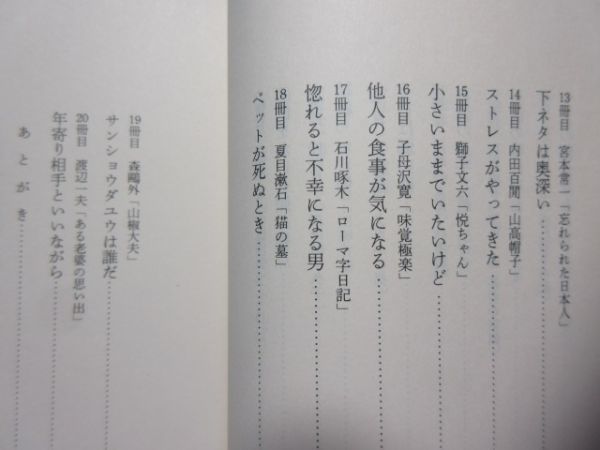 13冊目 宮本常一「忘れられた日本人」
下ネタは奥深い
14冊目 内田百閒「山高帽子」
ストレスがやってきた
15冊目 獅子文六「悦ちゃん」
小さいままでいたいけど
16冊目 子母沢寛「味覚極楽」
他人の食事が気になる
17冊目 石川啄木「ローマ字日記」
惚れると不幸になる男
18冊目 夏目漱石「猫の墓」
ペットが死ぬとき
19冊目 森鷗外「山椒大夫」
サンショウダユウは誰だ
20冊目 渡辺一夫「ある老婆の思い出」
年寄り相手といいながら
あとがき